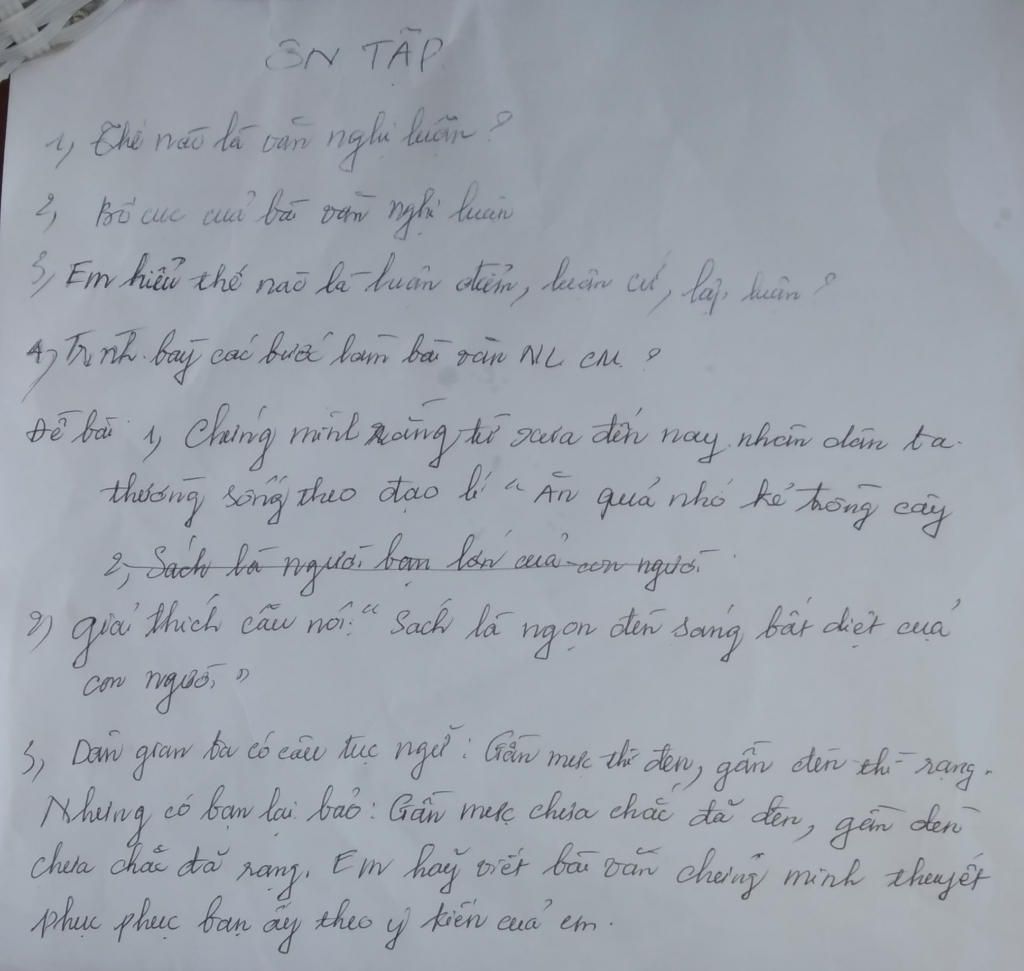 ÔN TẬP
1, Thế nào là văn nghị luận ?
2, Bố cục của bài văn nghị luận
3, Em hiểu thế nào là luận điểm, luận cứ, lập luận ?
4, Trình bày các bước làm bài văn NL CM ?
Đề bài 1, Chứng minh rằng từ xưa đến nay nhân dân ta
thường sống theo đạo lí “ Ăn quả nhớ kẻ trồng cây
2, Sách là người bạn lớn của con người.
2) giải thích câu nói: “ Sách là ngọn đèn sáng bất diệt của
con người ”
3, Dân gian ta có câu tục ngữ : Gần mực thì đen, gần đèn thì rạng.
Nhưng có bạn lại bảo : Gần mực chưa chắc đã đen, gần đèn
chưa chắc đã rạng. Em hãy viết bài văn chứng minh thuyết
phục phục bạn ấy theo ý kiến của em.